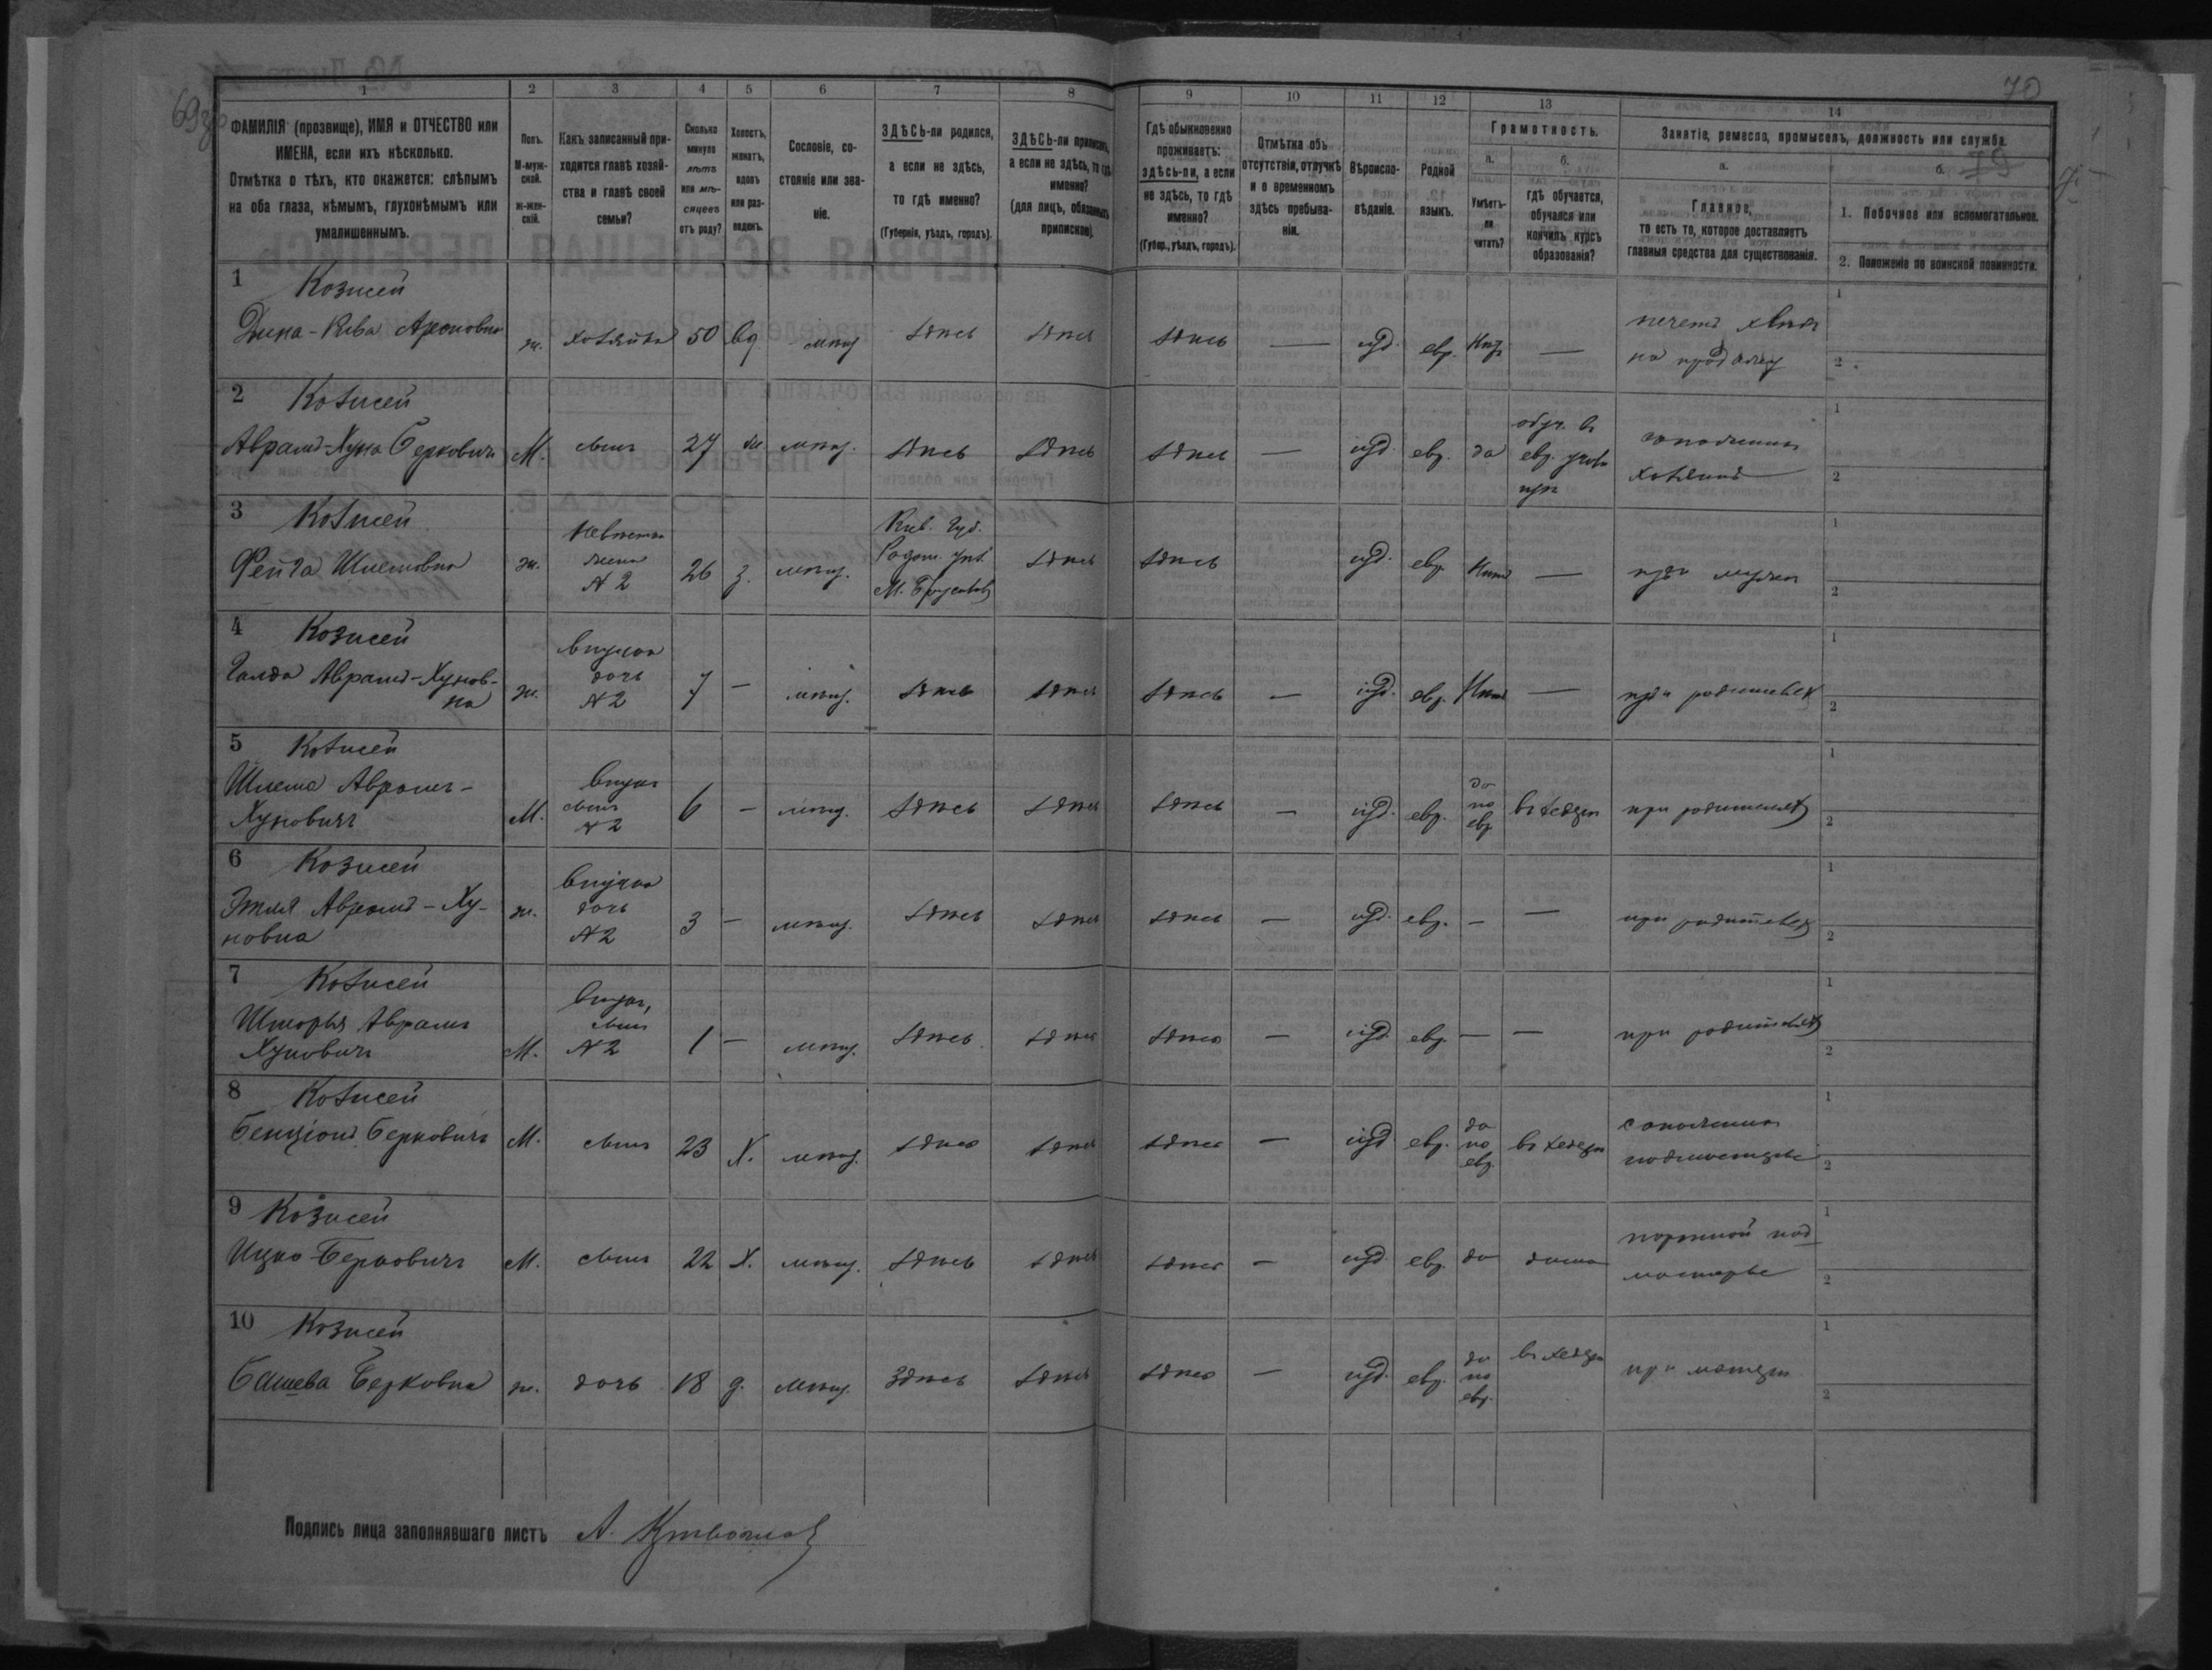 70
69
1 2 3 4 5 6 7 8 9 10 11 12 13 14
ФАМИЛІЯ (прозвище), ИМЯ и ОТЧЕСТВО или
ИМЕНА, если ихъ нѣсколько.
Отмѣтка о тѣхъ, кто окажется: слѣпымъ
на оба глаза, нѣмымъ, глухонѣмымъ или
умалишеннымъ.
Полъ.
М-муж-
ской.
ж-жен-
скій.
Какъ записанный при-
ходится главѣ хозяй-
ства и главѣ своей
семьи?
Сколько
минуло
лѣтъ
или мѣ-
сяцевъ
отъ роду?
Холостъ,
женатъ,
вдовъ
или раз-
веденъ.
Сословіе, со-
стояніе или зва-
ніе.
ЗДѢСЬ-ли родился,
а если не здѣсь,
то гдѣ именно?
(Губернія, уѣздъ, городъ).
ЗДѢСЬ-ли приписанъ,
а если не здѣсь, то гдѣ
именно?
(для лицъ, обязанныхъ
припискою).
Гдѣ обыкновенно
проживаетъ:
здѣсь-ли, а если
не здѣсь, то гдѣ
именно?
(Губер., уѣздъ, городъ).
Отмѣтка объ
отсутствіи, отлучкѣ
и о временномъ
здѣсь пребыва-
ніи.
Вѣроиспо-
вѣданіе.
Родной
языкъ.
Грамотность.
а.
Умѣетъ-
ли
читать?
б.
гдѣ обучается,
обучался или
кончилъ курсъ
образованія?
Занятіе, ремесло, промыселъ, должность или служба.
а.
Главное,
то есть то, которое доставляетъ
главныя средства для существованія.
б.
1. Побочное или вспомогательное.
2. Положеніе по воинской повинности.
1 Козисей
Дина-Рива Ароновна ж. хозяйка 50 вд. мѣщ здѣсь здѣсь здѣсь — іуд. евр. —
печетъ хлѣбъ
на продажу
2 Козисей
Аврамъ-Хуна Берковичъ М. сынъ 27 ж. мѣщ. здѣсь здѣсь здѣсь — іуд. евр. да
обуч. въ
евр.
хозяинъ
3 Козисей
Фейга Шлемовна ж.
невѣстка
жена
№ 2
26 з. мѣщ.
Кіев. губ.
Радом. уѣз.
М. Брусиловъ
здѣсь здѣсь іуд. евр. нѣтъ — при мужѣ
4 Козисей
Голда Аврамъ-Хунов-
на ж.
внучка
дочь
№ 2
7 — мѣщ. здѣсь здѣсь здѣсь — іуд. евр. нѣтъ — при родителяхъ
5 Козисей
Шлема Аврамъ-
Хуновичъ М.
внукъ
сынъ
№ 2
6 — мѣщ. здѣсь здѣсь здѣсь — іуд. евр.
да
по
евр.
въ хедерѣ при родителяхъ
6 Козисей
Этля Аврамъ-Ху-
новна ж.
внучка
дочь
№ 2
3 — мѣщ. здѣсь здѣсь здѣсь — іуд. евр. — — при родителяхъ
7 Козисей
Аврамъ
Хуновичъ М.
внукъ,
сынъ
№ 2
1 — мѣщ. здѣсь здѣсь здѣсь — іуд. евр. — — при родителяхъ
8 Козисей
Бенціонъ Берковичъ М. сынъ 23 Х. мѣщ. здѣсь здѣсь здѣсь — іуд. евр.
да
по
евр.
въ хедерѣ
подмастерье
9 Козисей
Ицко Берковичъ М. сынъ 22 Х. мѣщ. здѣсь здѣсь здѣсь — іуд. евр. да дома
портной под
мастерье
10 Козисей
Башева Берковна ж. дочь 18 д. мѣщ. здѣсь здѣсь здѣсь — іуд. евр.
да
по
евр.
въ хедерѣ
при матери
Подпись лица заполнявшаго листъ А.